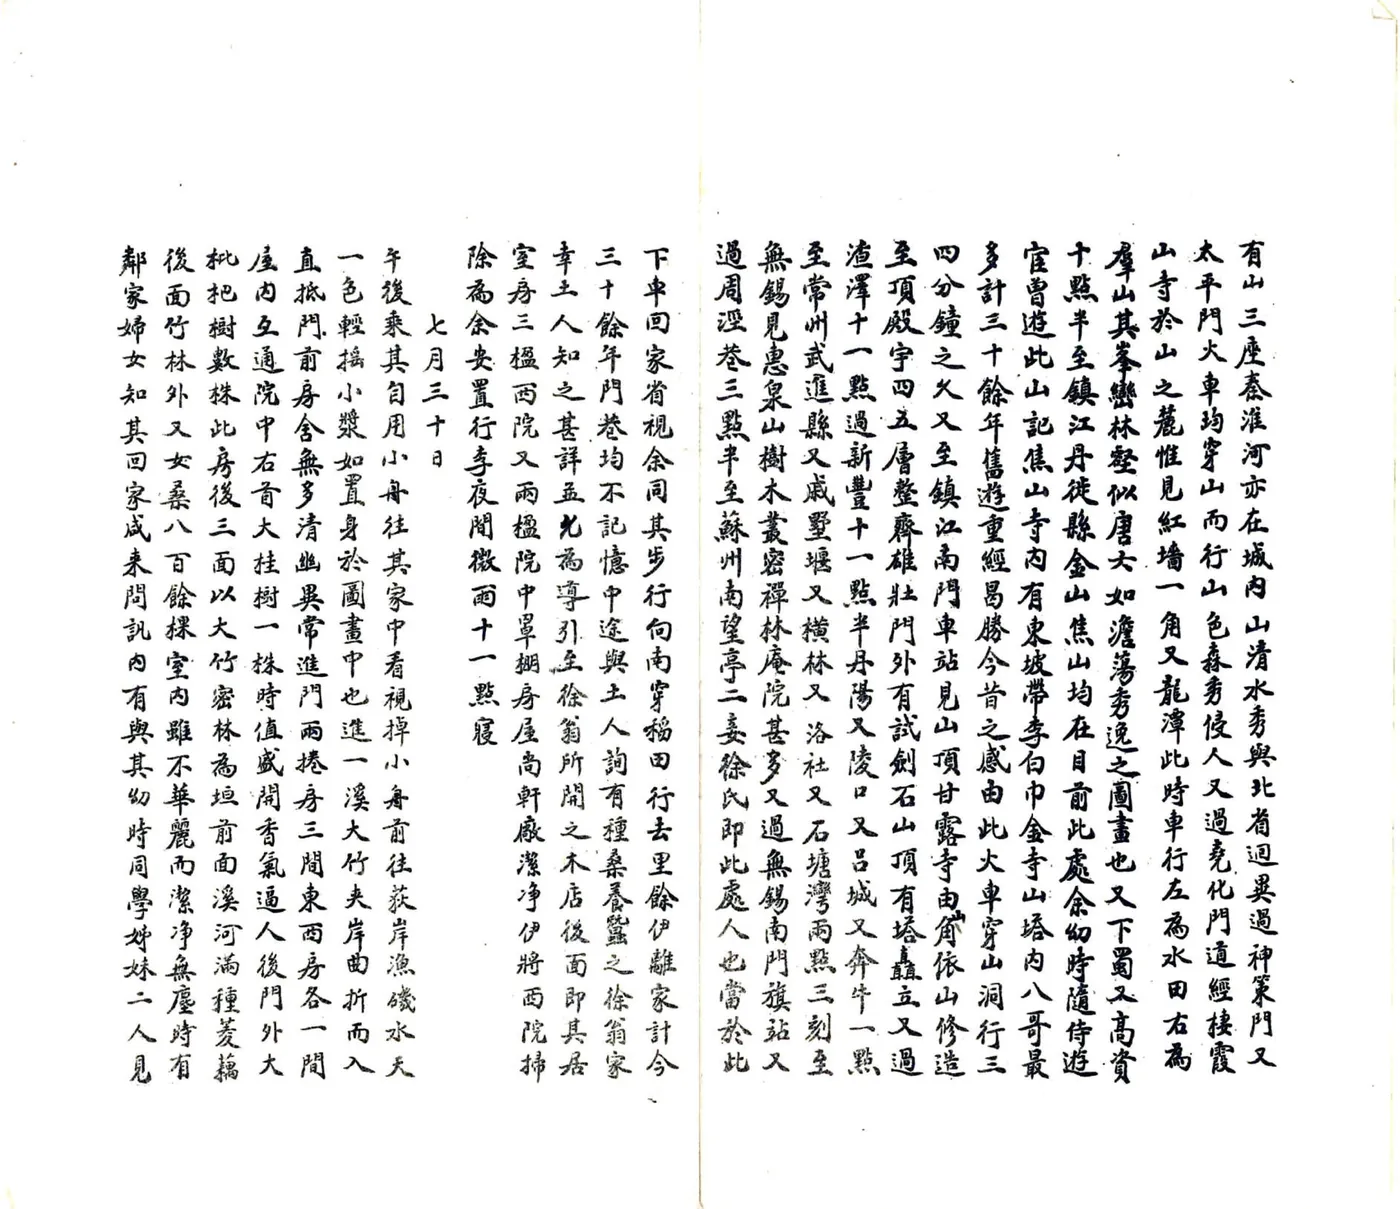 有山三座秦淮河亦在城內山清水秀與北省迥異過神策門又
太平門火車均穿山而行山色森秀侵人又過堯化門道經棲霞
山寺於山之麓惟見紅墻一角又龍潭此時車行左為水田右為
羣山其峯巒林壑似唐六如澹蕩秀逸之圖畫也又下蜀又高資
十點半至鎮江丹徒縣金山焦山均在目前此處余幼時隨侍遊
宦曾遊此山記焦山寺內有東坡帶李白巾金寺山塔內八哥最
多計三十餘年舊遊重經曷勝今昔之感由此火車穿山洞行三
四分鐘之久又至鎮江南門車站見山頂甘露寺由山角依山修造
至頂殿宇四五層整齊雄壯門外有試劍石山頂有塔矗立又過
渣澤十一點過新豐十一點半丹陽又陵口又呂城又奔牛一點
至常州武進縣又戚墅堰又橫林又洛社又石塘灣兩點三刻至
無錫見惠泉山樹木叢密禪林庵院甚多又過無錫南門旗站又
過周涇巷三點半至蘇州南望亭二妾徐氏即此處人也當於此
下車回家省視余同其步行向南穿稻田行去里餘伊離家計今
三十餘年門巷均不記憶中途與土人詢有種桑養蠶之徐翁家
幸土人知之甚詳並允為導引至徐翁所開之木店後面即其居
室房三楹西院又兩楹院中罩棚房屋尚軒廠潔净伊將西院掃
除為余安置行李夜間微雨十一點寢
七月三十日
午後乘其自用小舟往其家中看視掉小舟前往荻岸漁磯水天
一色輕搖小漿如置身於圖畫中也進一溪大竹夾岸曲折而入
直抵門前房舍無多清幽異常進門兩捲房三間東西房各一間
屋內互通院中右首大桂樹一株時值盛開香氣逼人後門外大
枇杷樹數株此房後三面以大竹密林為垣前面溪河滿種菱藕
後面竹林外又女桑八百餘棵室內雖不華麗而潔净無塵時有
鄰家婦女知其回家咸来問訊內有與其幼時同學姊妹二人見